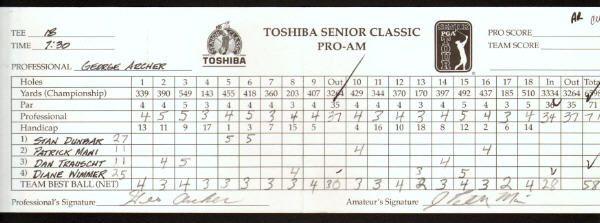 TEE 18
TIME 7:30
TOSHIBA SENIOR CLASSIC
PRO-AM
TOSHIBA
SENIOR
PGA
TOUR
PRO SCORE
TEAM SCORE
AR
PROFESSIONAL GEORGE ARCHER
Holes 1 2 3 4 5 6 7 8 9 Out 10 11 12 13 14 15 16 17 18 In Total
Yards (Championship) 339 390 549 143 455 418 360 203 407 3264 429 344 370 170 397 492 437 185 510 3334
Par 4 4 5 3 4 4 4 3 4 35 4 4 4 3 4 5 4 3 5 36 35 71
Professional 4 5 5 3 4 5 3 4 4 37 4 3 4 3 4 5 4 3 4 34 37 71
Handicap 13 11 9 17 1 3 7 15 5 4 16 10 18 8 12 2 6 14
1) STAN DUNBAR 27 5 5
2) PATRICK MANI 11 4 4
3) DAN TRAUSCHT 11 4 5 4
4) DIANE WIMMER 25 4 3 5
TEAM BEST BALL (NET) 4 3 4 3 3 3 3 3 4 30 3 3 4 2 3 4 3 2 4 28 58
Professional's Signature Geo Archer Amateur's Signature